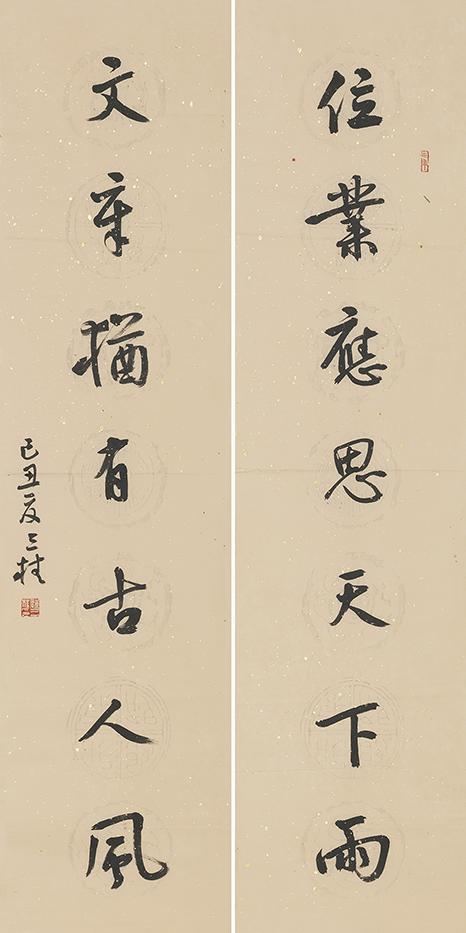 位業應思天下雨
文章猶有古人風
己丑夏三柱